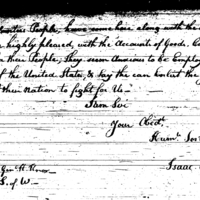 People, have come here along with the
highly pleased, with the Accounts of Goods,
their People; They seem anxious to be Employ
of the United States, & Say the can
their Nation to fight for Us —
I am Sir
Your Obedt.
Huml. Ser
Isaac
Genl. H. Knox
S. of W—